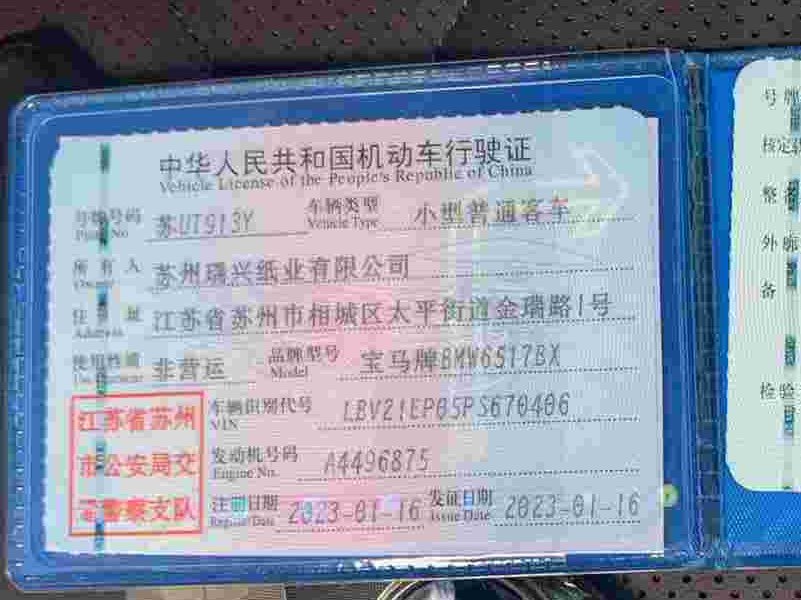 中华人民共和国机动车行驶证
Vehicle License of the People's Republic of China
号牌号码 苏UT913Y 车辆类型 小型普通客车
Plate No Vehicle Type
所有人 苏州瑞兴纸业有限公司
Owner
住址 江苏省苏州市相城区太平街道金瑞路1号
Address
使用性质 非营运 品牌型号 宝马牌BMW6517BX
Use Character Model
车辆识别代号 LBV21EP05PS670406
VIN
发动机号码 A4496875
Engine No.
注册日期 2023-01-16 发证日期 2023-01-16
Register Date Issue Date
江苏省苏州
市公安局交
通警察支队
号牌
核定
整
外廓
备
检验